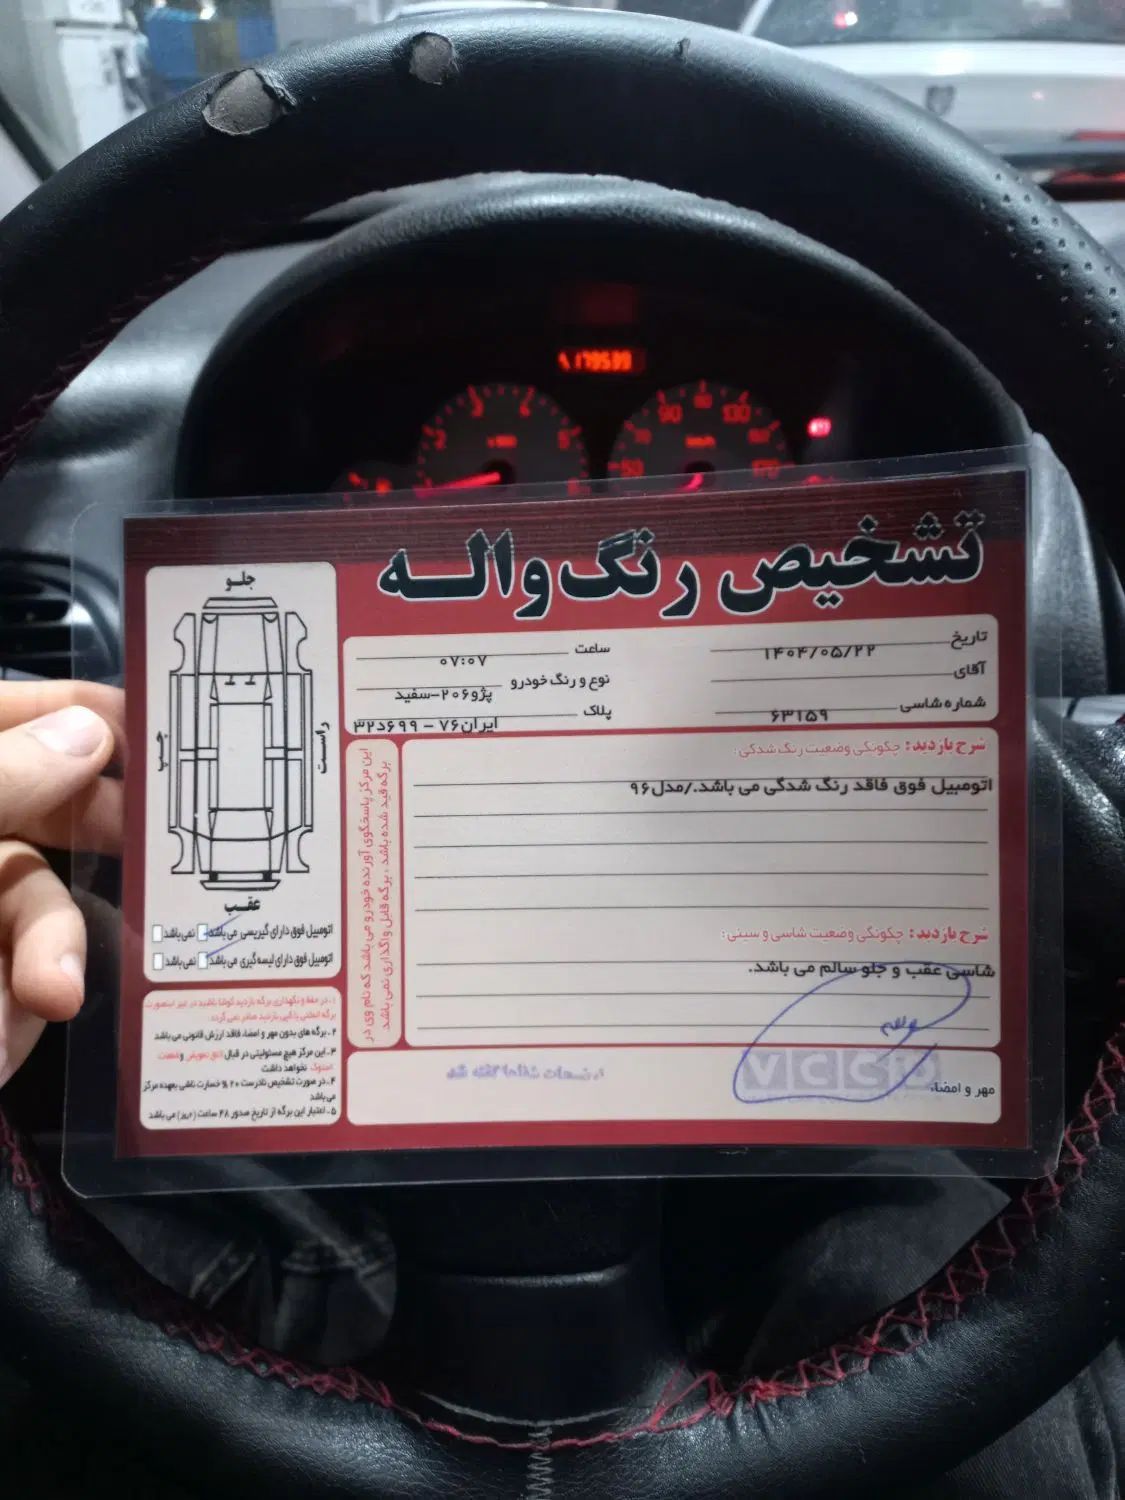 179539
تشخیص رنگ واله
تاریخ ۱۴۰۴/۰۵/۲۲ ساعت ۰۷:۰۷
آقای نوع و رنگ خودرو پژو۲۰۶-سفید
شماره شاسی ۶۳۱۵۹ پلاک ایران۷۶ - ۶۹۹د۳۲
شرح بازدید: چگونگی وضعیت رنگ شدگی:
اتومبیل فوق فاقد رنگ شدگی می باشد./مدل۹۶
شرح بازدید: چگونگی وضعیت شاسی و سینی:
شاسی عقب و جلو سالم می باشد.
مهر و امضاء
VCCD
این مرکز پاسخگوی آورنده خودرو می باشد که نام وی در
برگه قید شده باشد ، برگه قابل واگذاری نمی باشد.
جلو
چپ
راست
عقب
اتومبیل فوق دارای گیربسی می باشد نمی باشد
اتومبیل فوق دارای لیسه گیری می باشد نمی باشد
۱. در حفظ و نگهداری برگه بازدید کوشا باشید در غیر اینصورت
برگه المثنی یا کپی بازدید صادر نمی گردد.
۲. برگه های بدون مهر و امضاء فاقد ارزش قانونی می باشد
۳. این مرکز هیچ مسئولیتی در قبال اتاق تعویض و قطعات
استوک نخواهد داشت
۴. در صورت تشخیص نادرست ۲۰% خسارت ناشی بعهده مرکز
می باشد
۵. اعتبار این برگه از تاریخ صدور ۴۸ ساعت (۲روز) می باشد